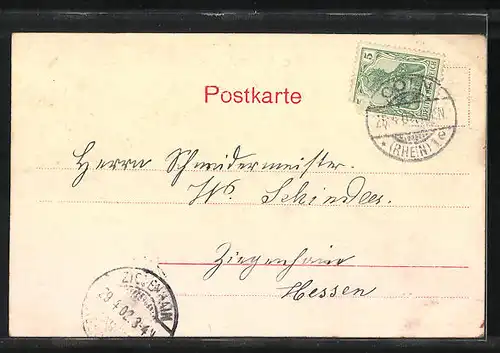 5
COBLENZ
(RHEIN) 1e
Postkarte
Herrn Schneidermeister.
W. Schindler.
Ziegenhain
Hessen
ZIEGENHAIN
29 4 02 3-4